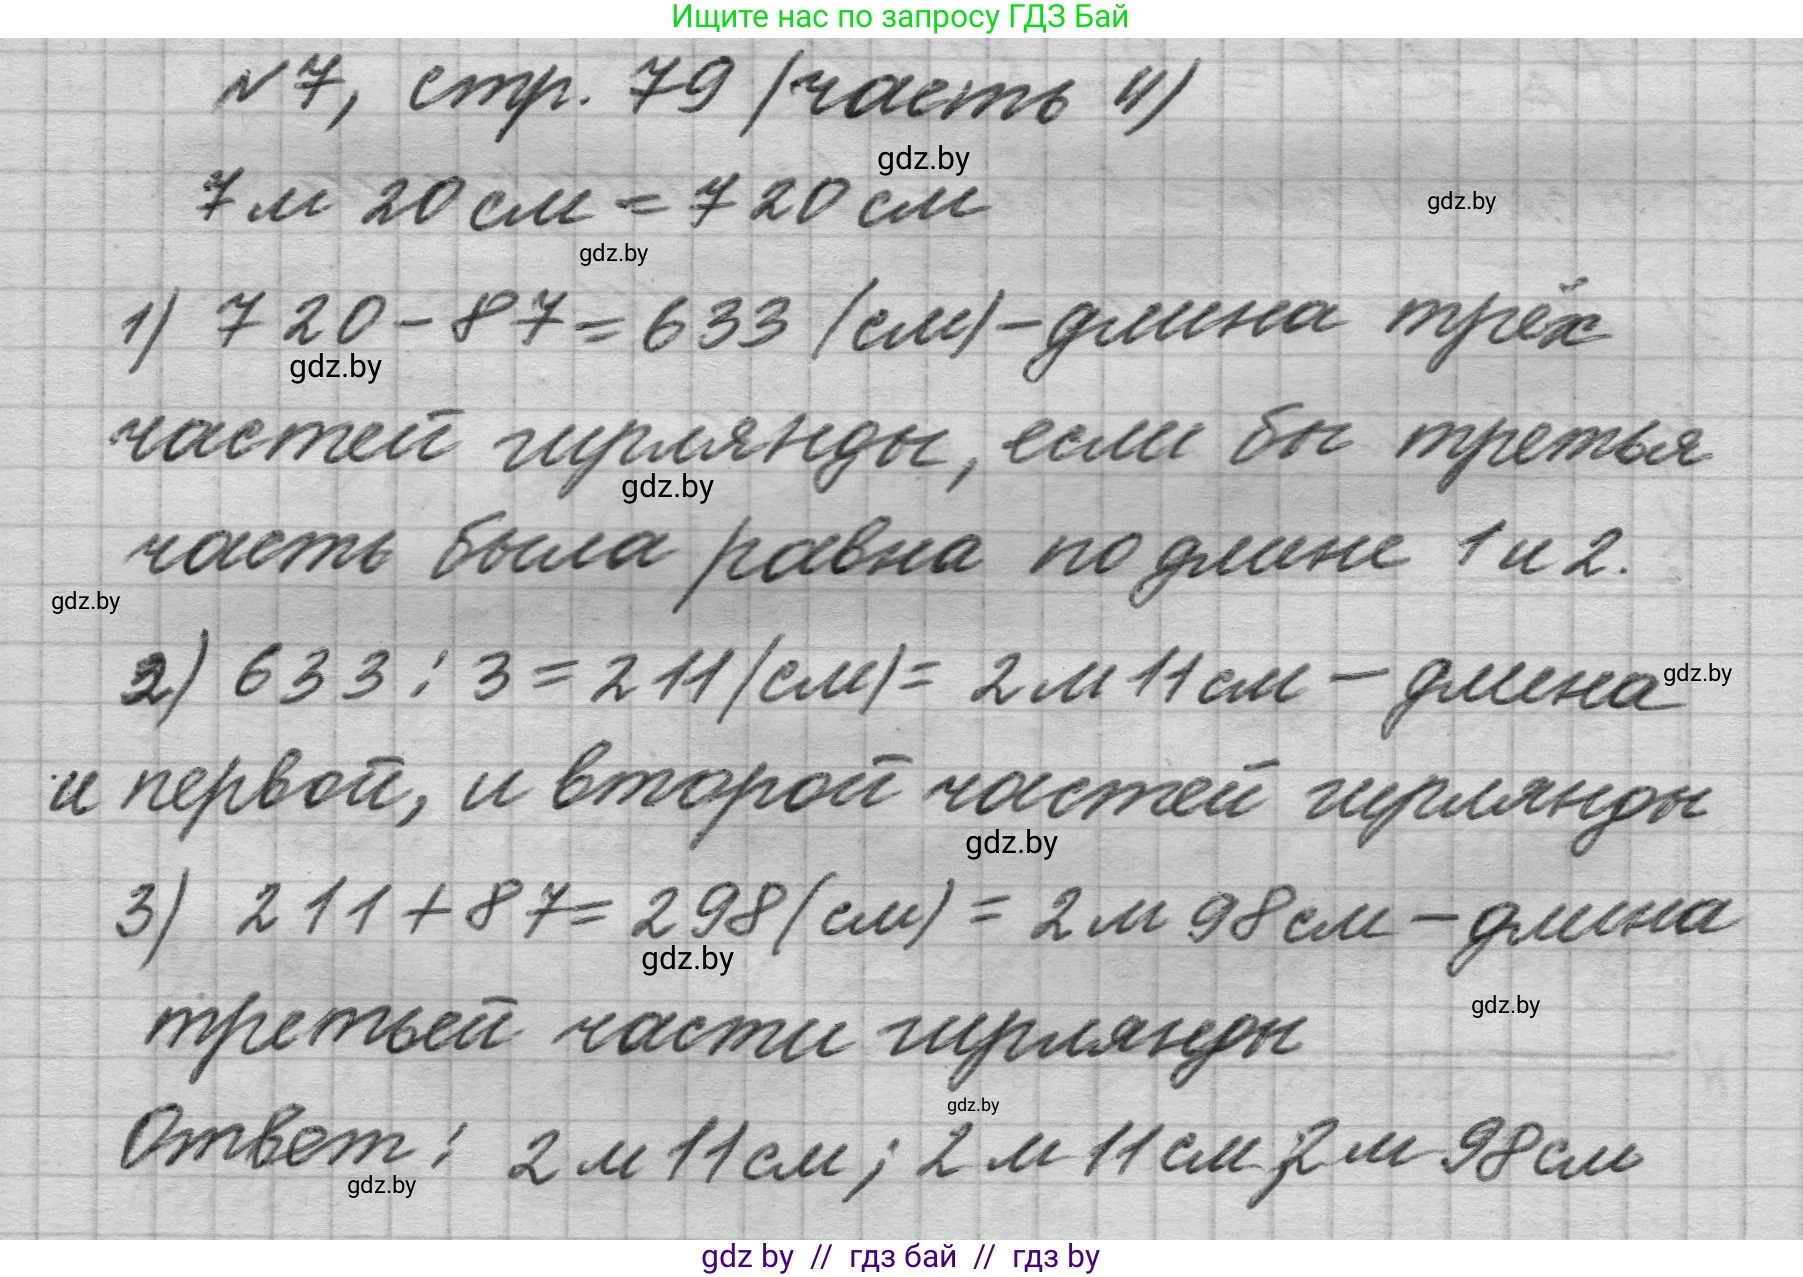 Ищите нас по запросу ГДЗ Бай
№7, стр. 79 (часть 4)
gdz.by
7 м 20 см = 720 см
gdz.by
gdz.by
1) 720 - 87 = 633 (см) - длина трёх
gdz.by
частей гирлянды, если бы третья
gdz.by
часть была равна по длине 1 и 2.
gdz.by
2) 633 : 3 = 211 (см) = 2 м 11 см - длина
gdz.by
и первой, и второй частей гирлянды
gdz.by
3) 211 + 87 = 298 (см) = 2 м 98 см - длина
gdz.by
gdz.by
третьей части гирлянды
gdz.by
Ответ: 2 м 11 см; 2 м 11 см; 2 м 98 см
gdz.by
gdz by // гдз бай // гдз by